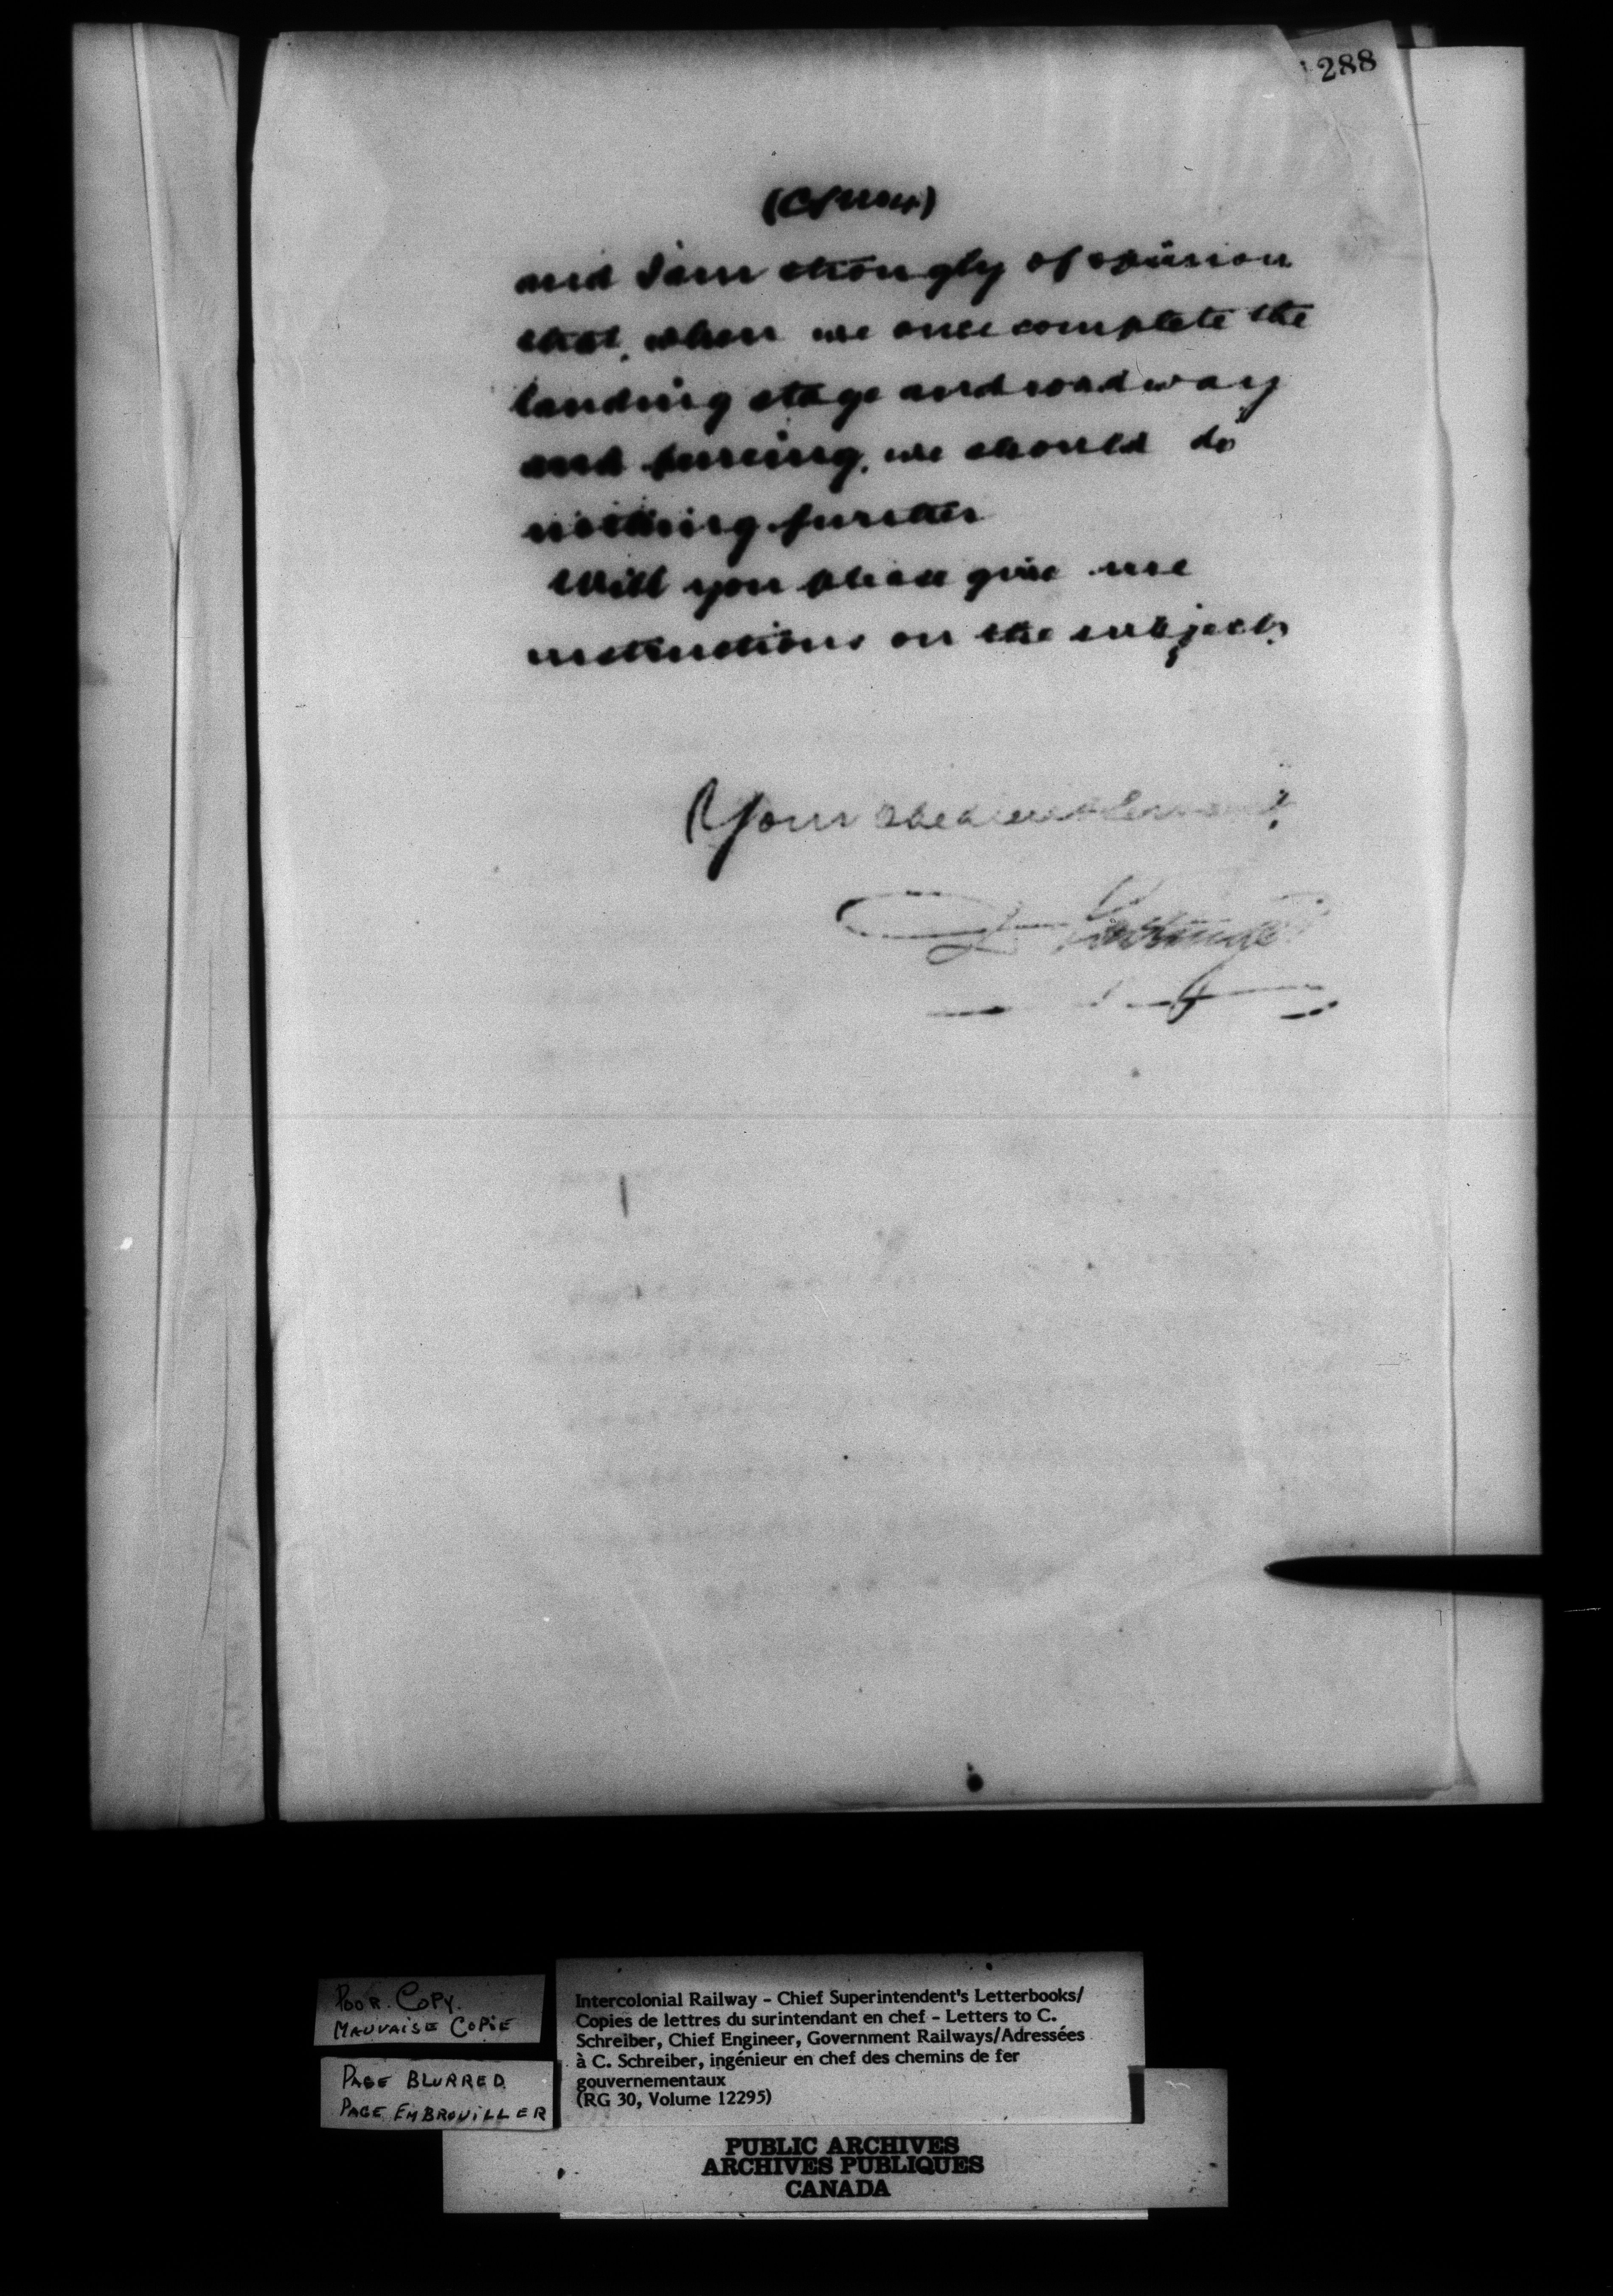 288
and I am strongly of opinion
that, when we once complete the
landing stage and roadway
and fencing, we should do
nothing further
Will you please give me
instructions on the subject,
Your obedient Servant,
POOR COPY.
MAUVAISE COPIE
PAGE BLURRED
PAGE EMBROUILLER
Intercolonial Railway - Chief Superintendent's Letterbooks/
Copies de lettres du surintendant en chef - Letters to C.
Schreiber, Chief Engineer, Government Railways/Adressées
à C. Schreiber, ingénieur en chef des chemins de fer
gouvernementaux
(RG 30, Volume 12295)
PUBLIC ARCHIVES
ARCHIVES PUBLIQUES
CANADA